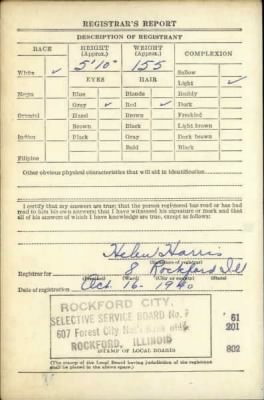 REGISTRAR'S REPORT
DESCRIPTION OF REGISTRANT
RACE HEIGHT (Approx.) WEIGHT (Approx.) COMPLEXION
5'10" 155
White ✓ EYES HAIR Sallow
Light ✓
Negro Blue Blonde Ruddy
Gray ✓ Red ✓ Dark
Oriental Hazel Brown Freckled
Brown Black Light brown
Indian Black Gray Dark brown
Bald Black
Filipino
Other obvious physical characteristics that will aid in identification
I certify that my answers are true; that the person registered has read or has had
read to him his own answers; that I have witnessed his signature or mark and that
all of his answers of which I have knowledge are true, except as follows:
Helen Harris
(Signature of registrar)
Registrar for 8 Rockford Ill
(Precinct) (Ward) (City or county) (State)
Date of registration Oct. 16 - 1940
ROCKFORD CITY,
SELECTIVE SERVICE BOARD No.
607 Forest City Nat'l Bank Bldg.
ROCKFORD, ILLINOIS
61
201
802
(STAMP OF LOCAL BOARD)
(The stamp of the Local Board having jurisdiction of the registrant
shall be placed in the above space.)